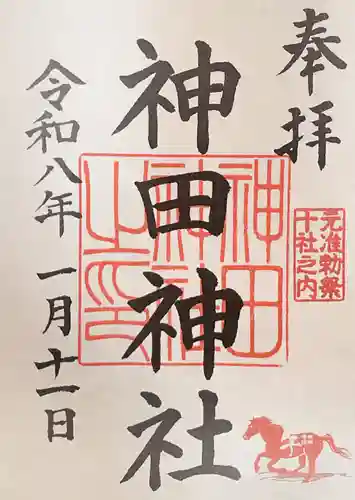 奉拝
元准勅祭
十社之内
神田神社
神田
神社
之印
令和八年 一月十一日